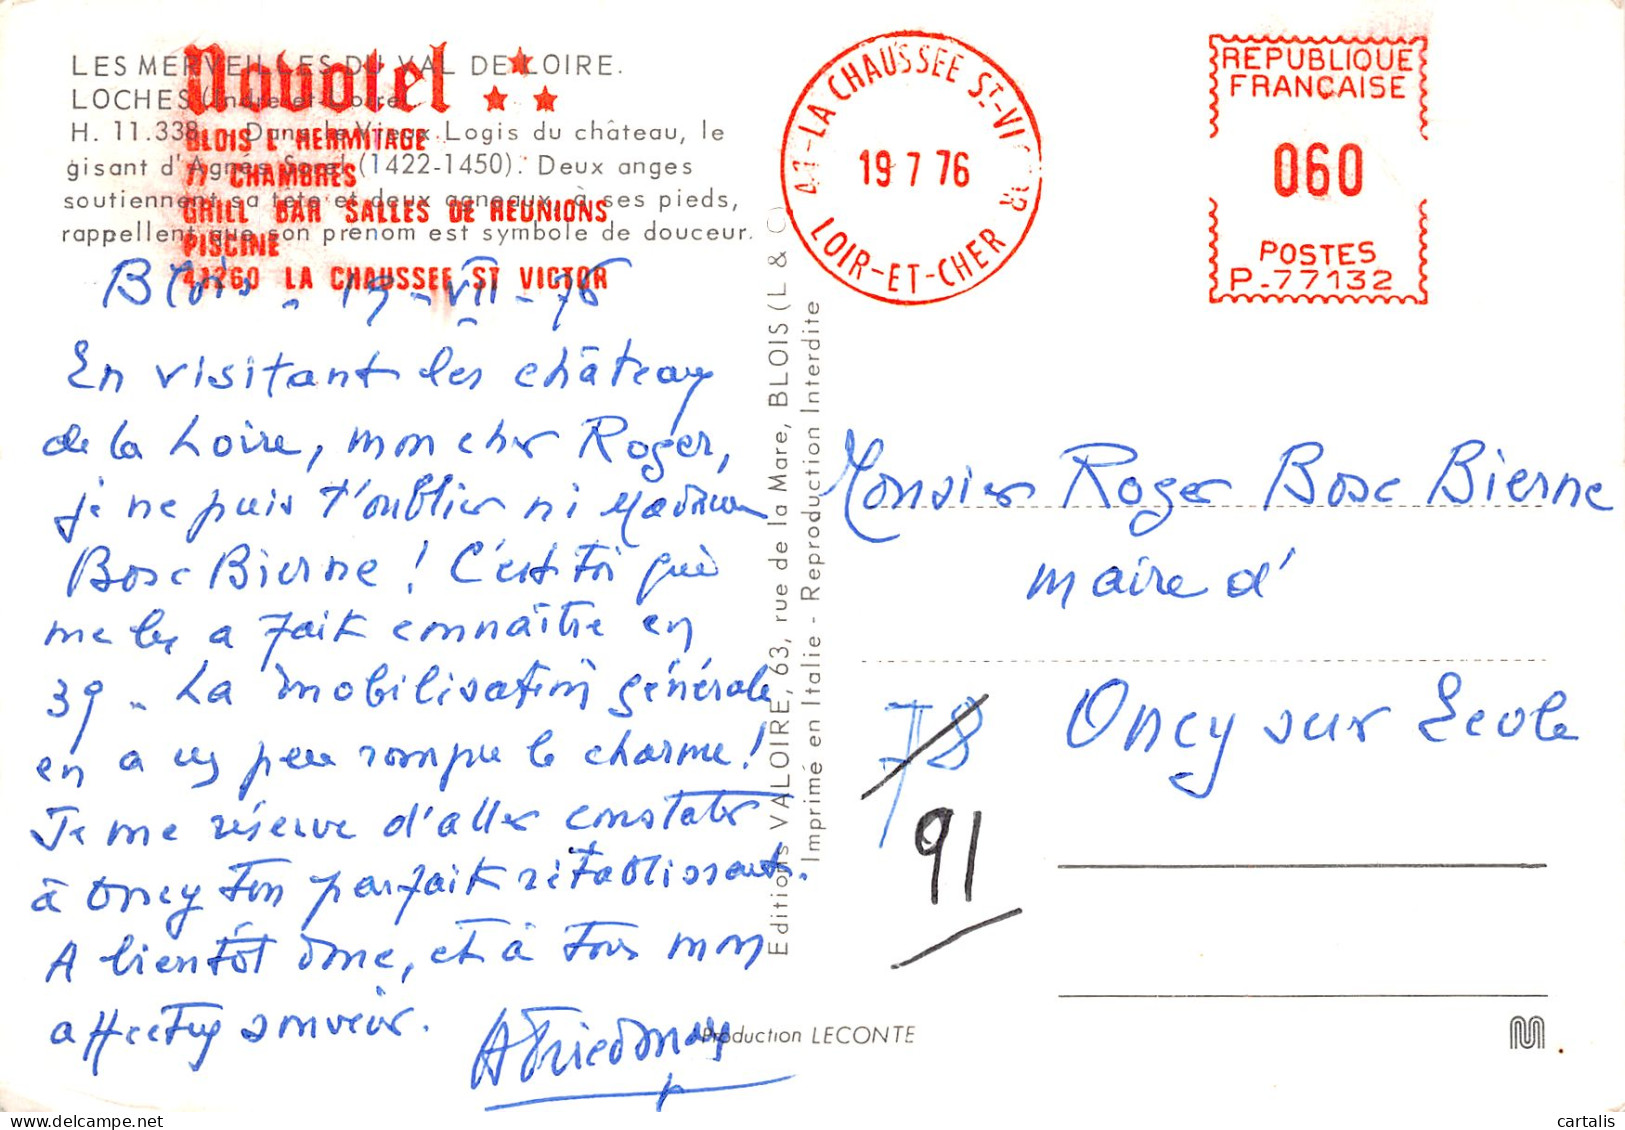 LES MERVEILLES DU VAL DE LOIRE.
LOCHES (Indre-et-Loire)
H. 11.338 - Dans le Vieux Logis du château, le
gisant d'Agnès Sorel (1422-1450). Deux anges
soutiennent sa tête et deux agneaux à ses pieds,
rappellent que son prénom est symbole de douceur.
Novotel
BLOIS L'HERMITAGE
77 CHAMBRES
GRILL BAR SALLES DE REUNIONS
PISCINE
41260 LA CHAUSSEE ST VICTOR
41-LA CHAUSSEE ST-VICTOR
19 7 76
LOIR-ET-CHER
REPUBLIQUE
FRANÇAISE
060
POSTES
P.77132
Blois - 19-VII-76
En visitant les château
de la Loire, mon cher Roger,
je ne puis t'oublier ni Madame
Bosc Bierne ! C'est Toi qui
me les a fait connaître en
39 - La mobilisation générale
en a un peu rompu le charme !
Je me réserve d'aller constater
à Oncy Ton parfait rétablissement.
A bientôt donc, et à Tous mon
affectueux souvenir.
Editions VALOIRE, 63, rue de la Mare, BLOIS (L & C)
Imprimé en Italie - Reproduction Interdite
Monsieur Roger Bosc Bierne
maire d'
Oncy sur Ecole
78
91
Production LECONTE
cartalis